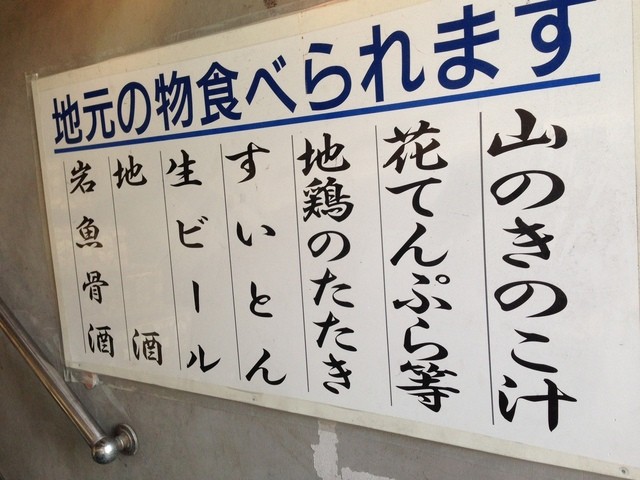 地元の物食べられます
山のきのこ汁
花てんぷら等
地鶏のたたき
すいとん
生ビール
地酒
岩魚骨酒